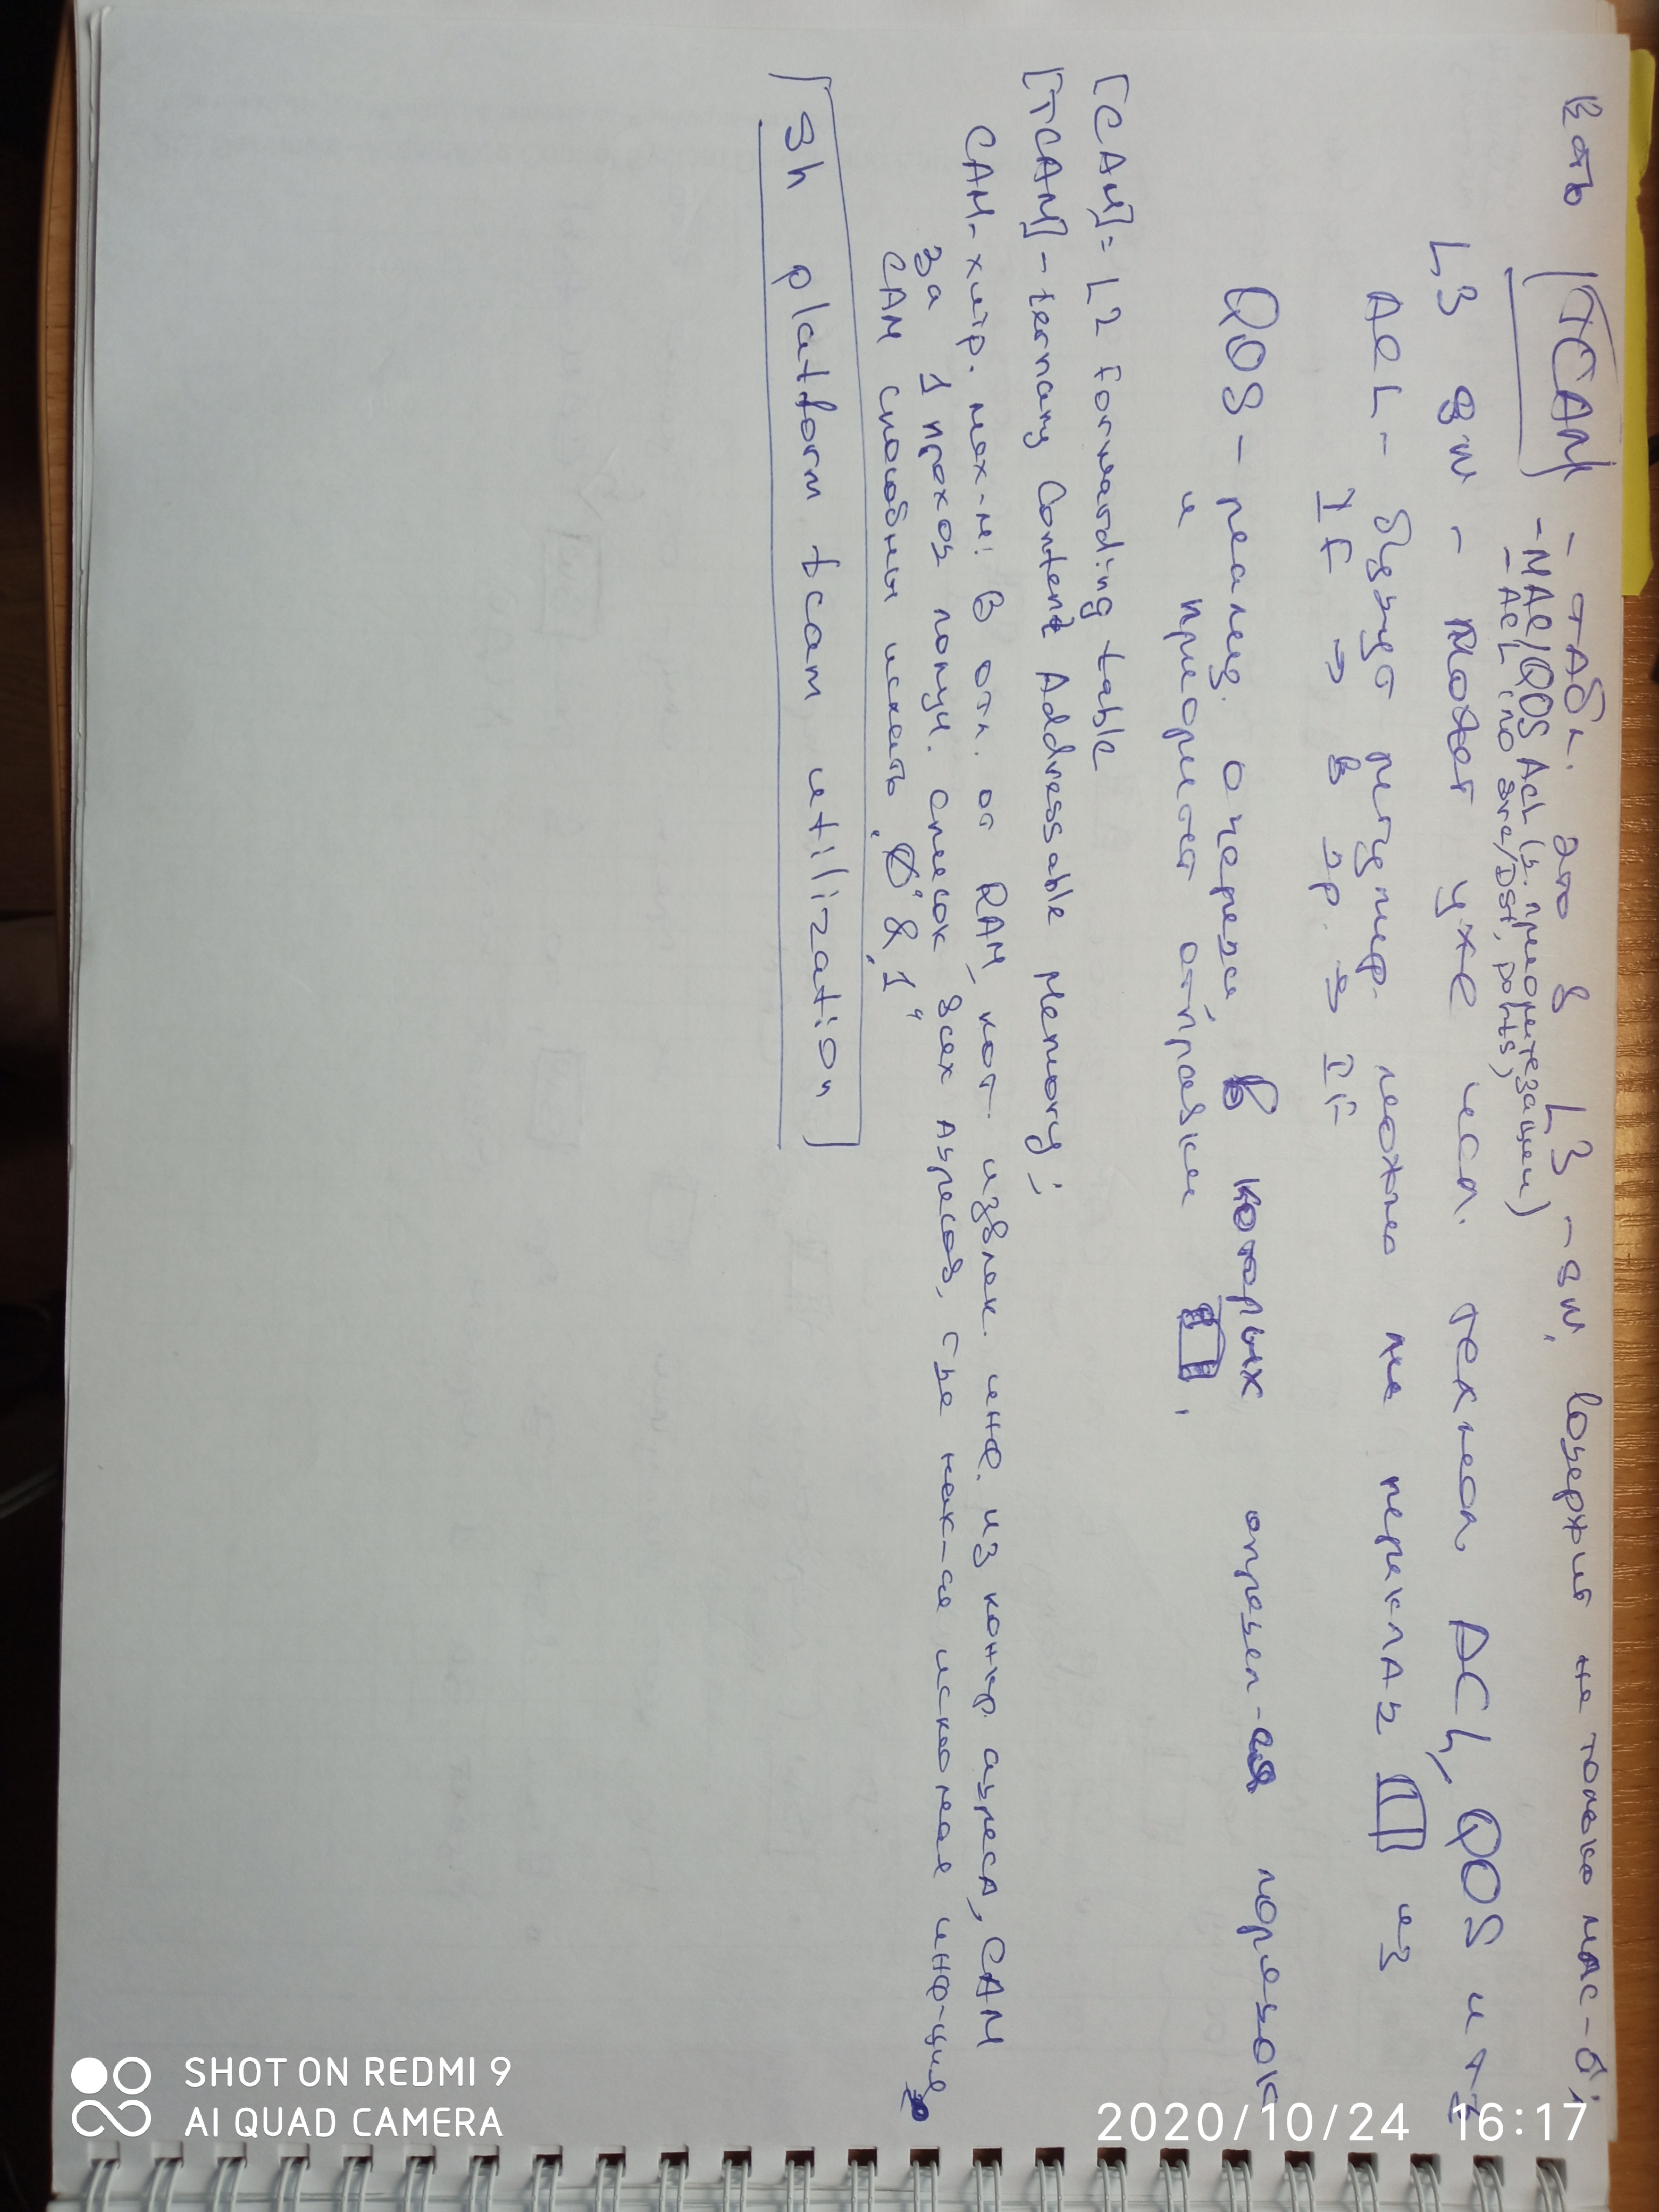 Есть [TCAM] - табл. это в L3 -SW, содержит не только MAC-и;
- MAC/QOS ACL (д. приоритезации)
- ACL (по Src/DST, ports)
L3 SW - может уже исп. технол. ACL, QOS и тд
ACL - будут регулир. можно ли переклад из
IF → в др. → IF
QOS - реализ. очереди, в которых определ-ся порядок
и приоритет отправки .
[CAM]= L2 Forwarding table
[TCAM] - ternary Content Addressable Memory;
CAM - хитр. мех-м: В отл. от RAM, кот. извлек. инф. из конкр. адреса, CAM
за 1 проход получ. список всех адресов, где нах-ся искомая инф-ция,
CAM способны искать „0“ & „1“
sh platform tcam utilization
2020/10/24 16:17
SHOT ON REDMI 9
AI QUAD CAMERA